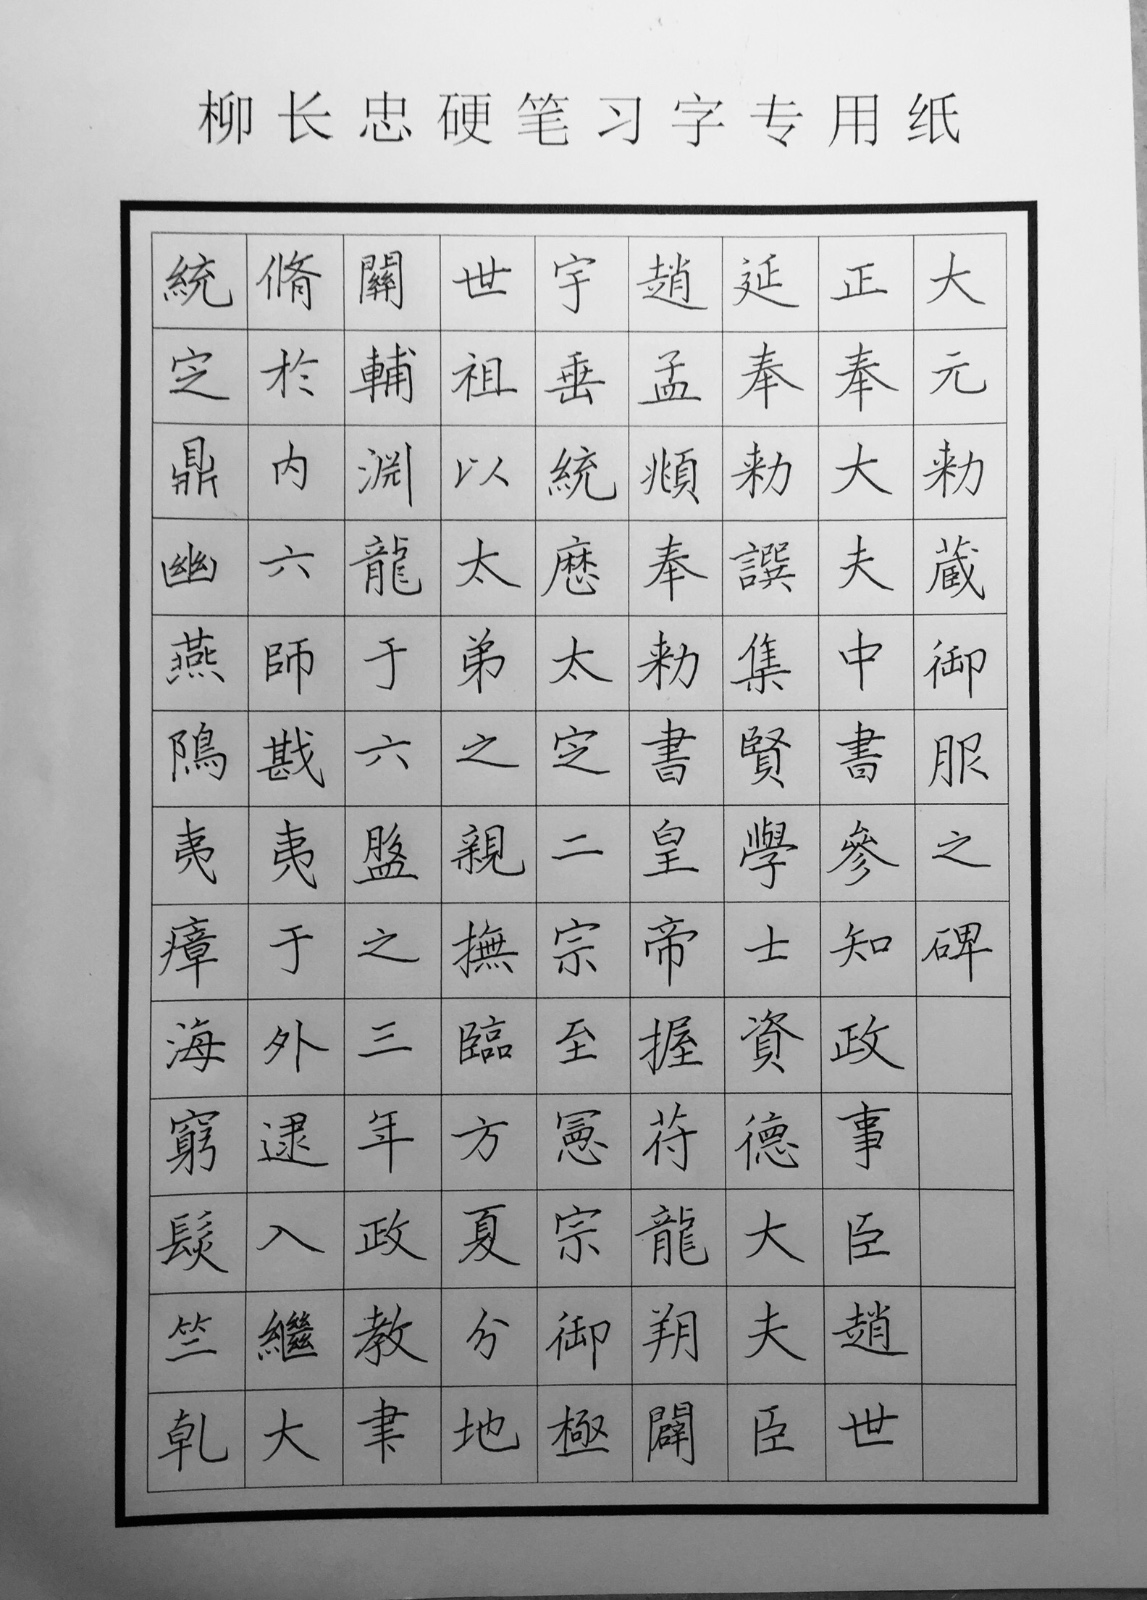 柳长忠硬笔习字专用纸
大元勑蔵御服之碑
正奉大夫中書參知政事臣趙世
延奉勑譔集賢學士資德大夫臣
趙孟頫奉勑書皇帝握苻龍翔闢
宇垂統厯太㝎二宗至憲宗御極
世祖以太弟之親撫臨方夏分地
關輔淵龍于六盤之三年政教聿
脩於内六師戡夷于外逮入繼大
統㝎鼎幽燕隝夷瘴海窮髮竺乹